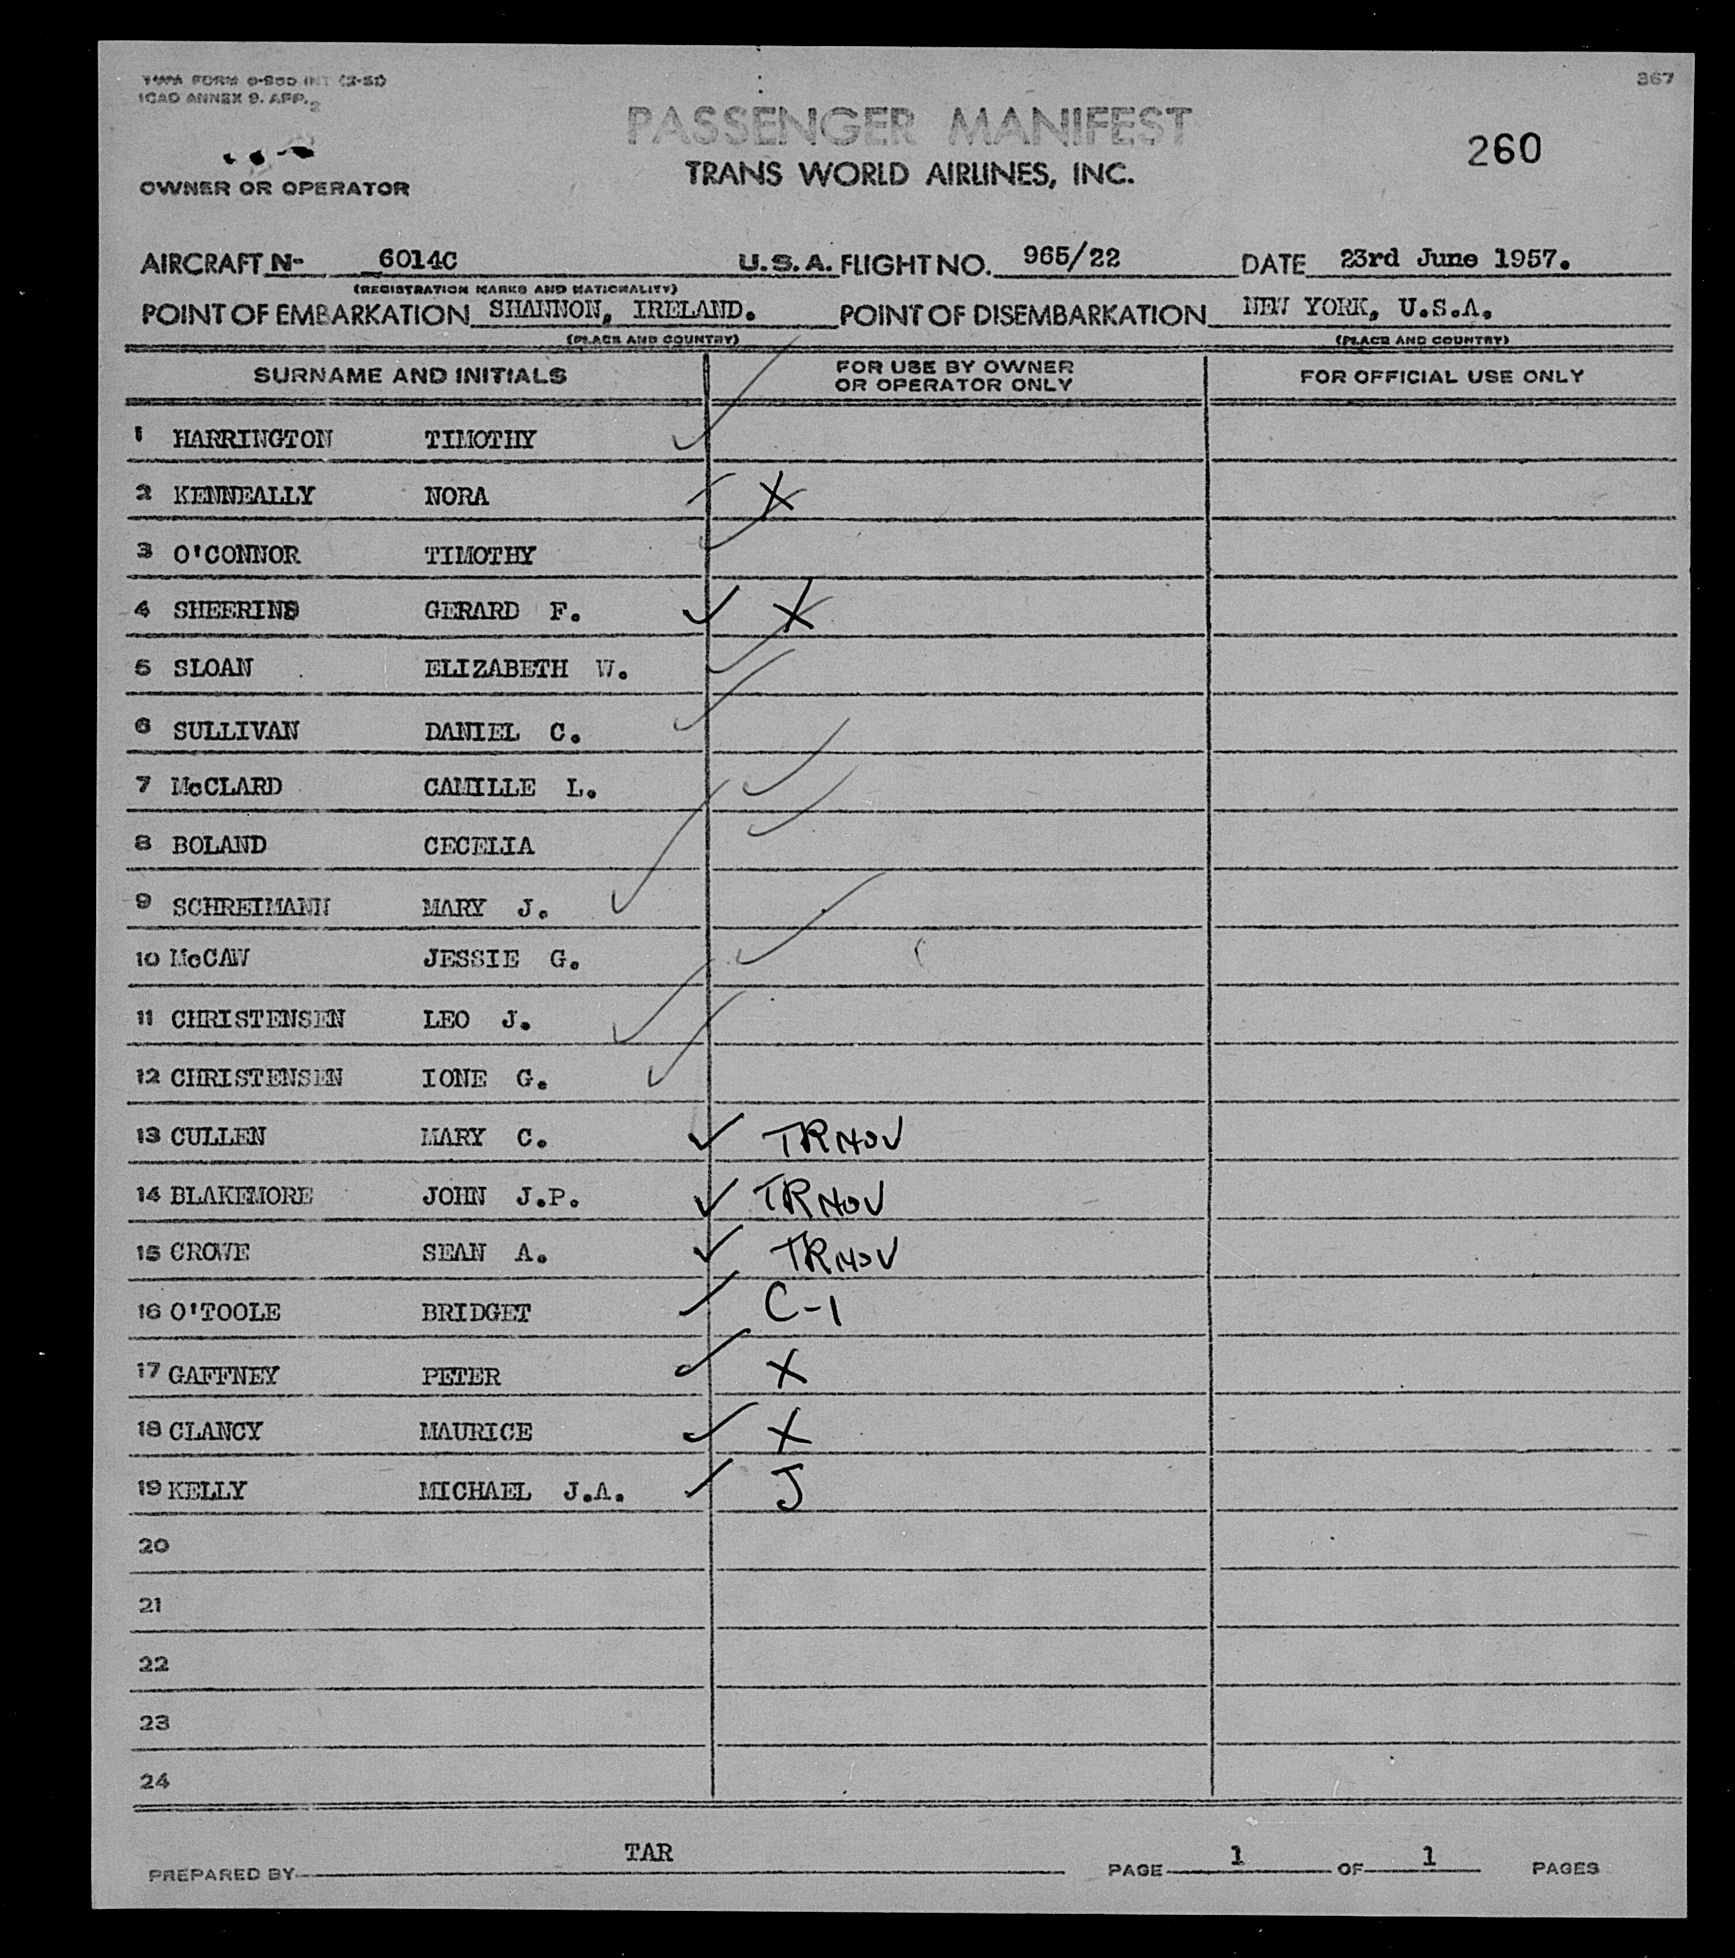 TWA FORM INT
ICAO ANNEX 9. APP. 2
367
PASSENGER MANIFEST
260
TRANS WORLD AIRLINES, INC.
OWNER OR OPERATOR
AIRCRAFT N- 6014C U.S.A. FLIGHT NO. 965/22 DATE 23rd June 1957.
(REGISTRATION MARKS AND NATIONALITY)
POINT OF EMBARKATION SHANNON, IRELAND. POINT OF DISEMBARKATION NEW YORK, U.S.A.
(PLACE AND COUNTRY) (PLACE AND COUNTRY)
SURNAME AND INITIALS FOR USE BY OWNER OR OPERATOR ONLY FOR OFFICIAL USE ONLY
1 HARRINGTON TIMOTHY
2 KENNEALLY NORA X
3 O'CONNOR TIMOTHY
4 SHEERINS GERARD F. X
5 SLOAN ELIZABETH W.
6 SULLIVAN DANIEL C.
7 McCLARD CAMILLE L.
8 BOLAND CECELIA
9 SCHREIMANN MARY J.
10 McCAW JESSIE G.
11 CHRISTENSEN LEO J.
12 CHRISTENSEN IONE G.
13 CULLEN MARY C. TRNOV
14 BLAKEMORE JOHN J.P. TRNOV
15 CROWE SEAN A. TRNOV
16 O'TOOLE BRIDGET C-1
17 GAFFNEY PETER X
18 CLANCY MAURICE X
19 KELLY MICHAEL J.A. J
20
21
22
23
24
PREPARED BY TAR PAGE 1 OF 1 PAGES